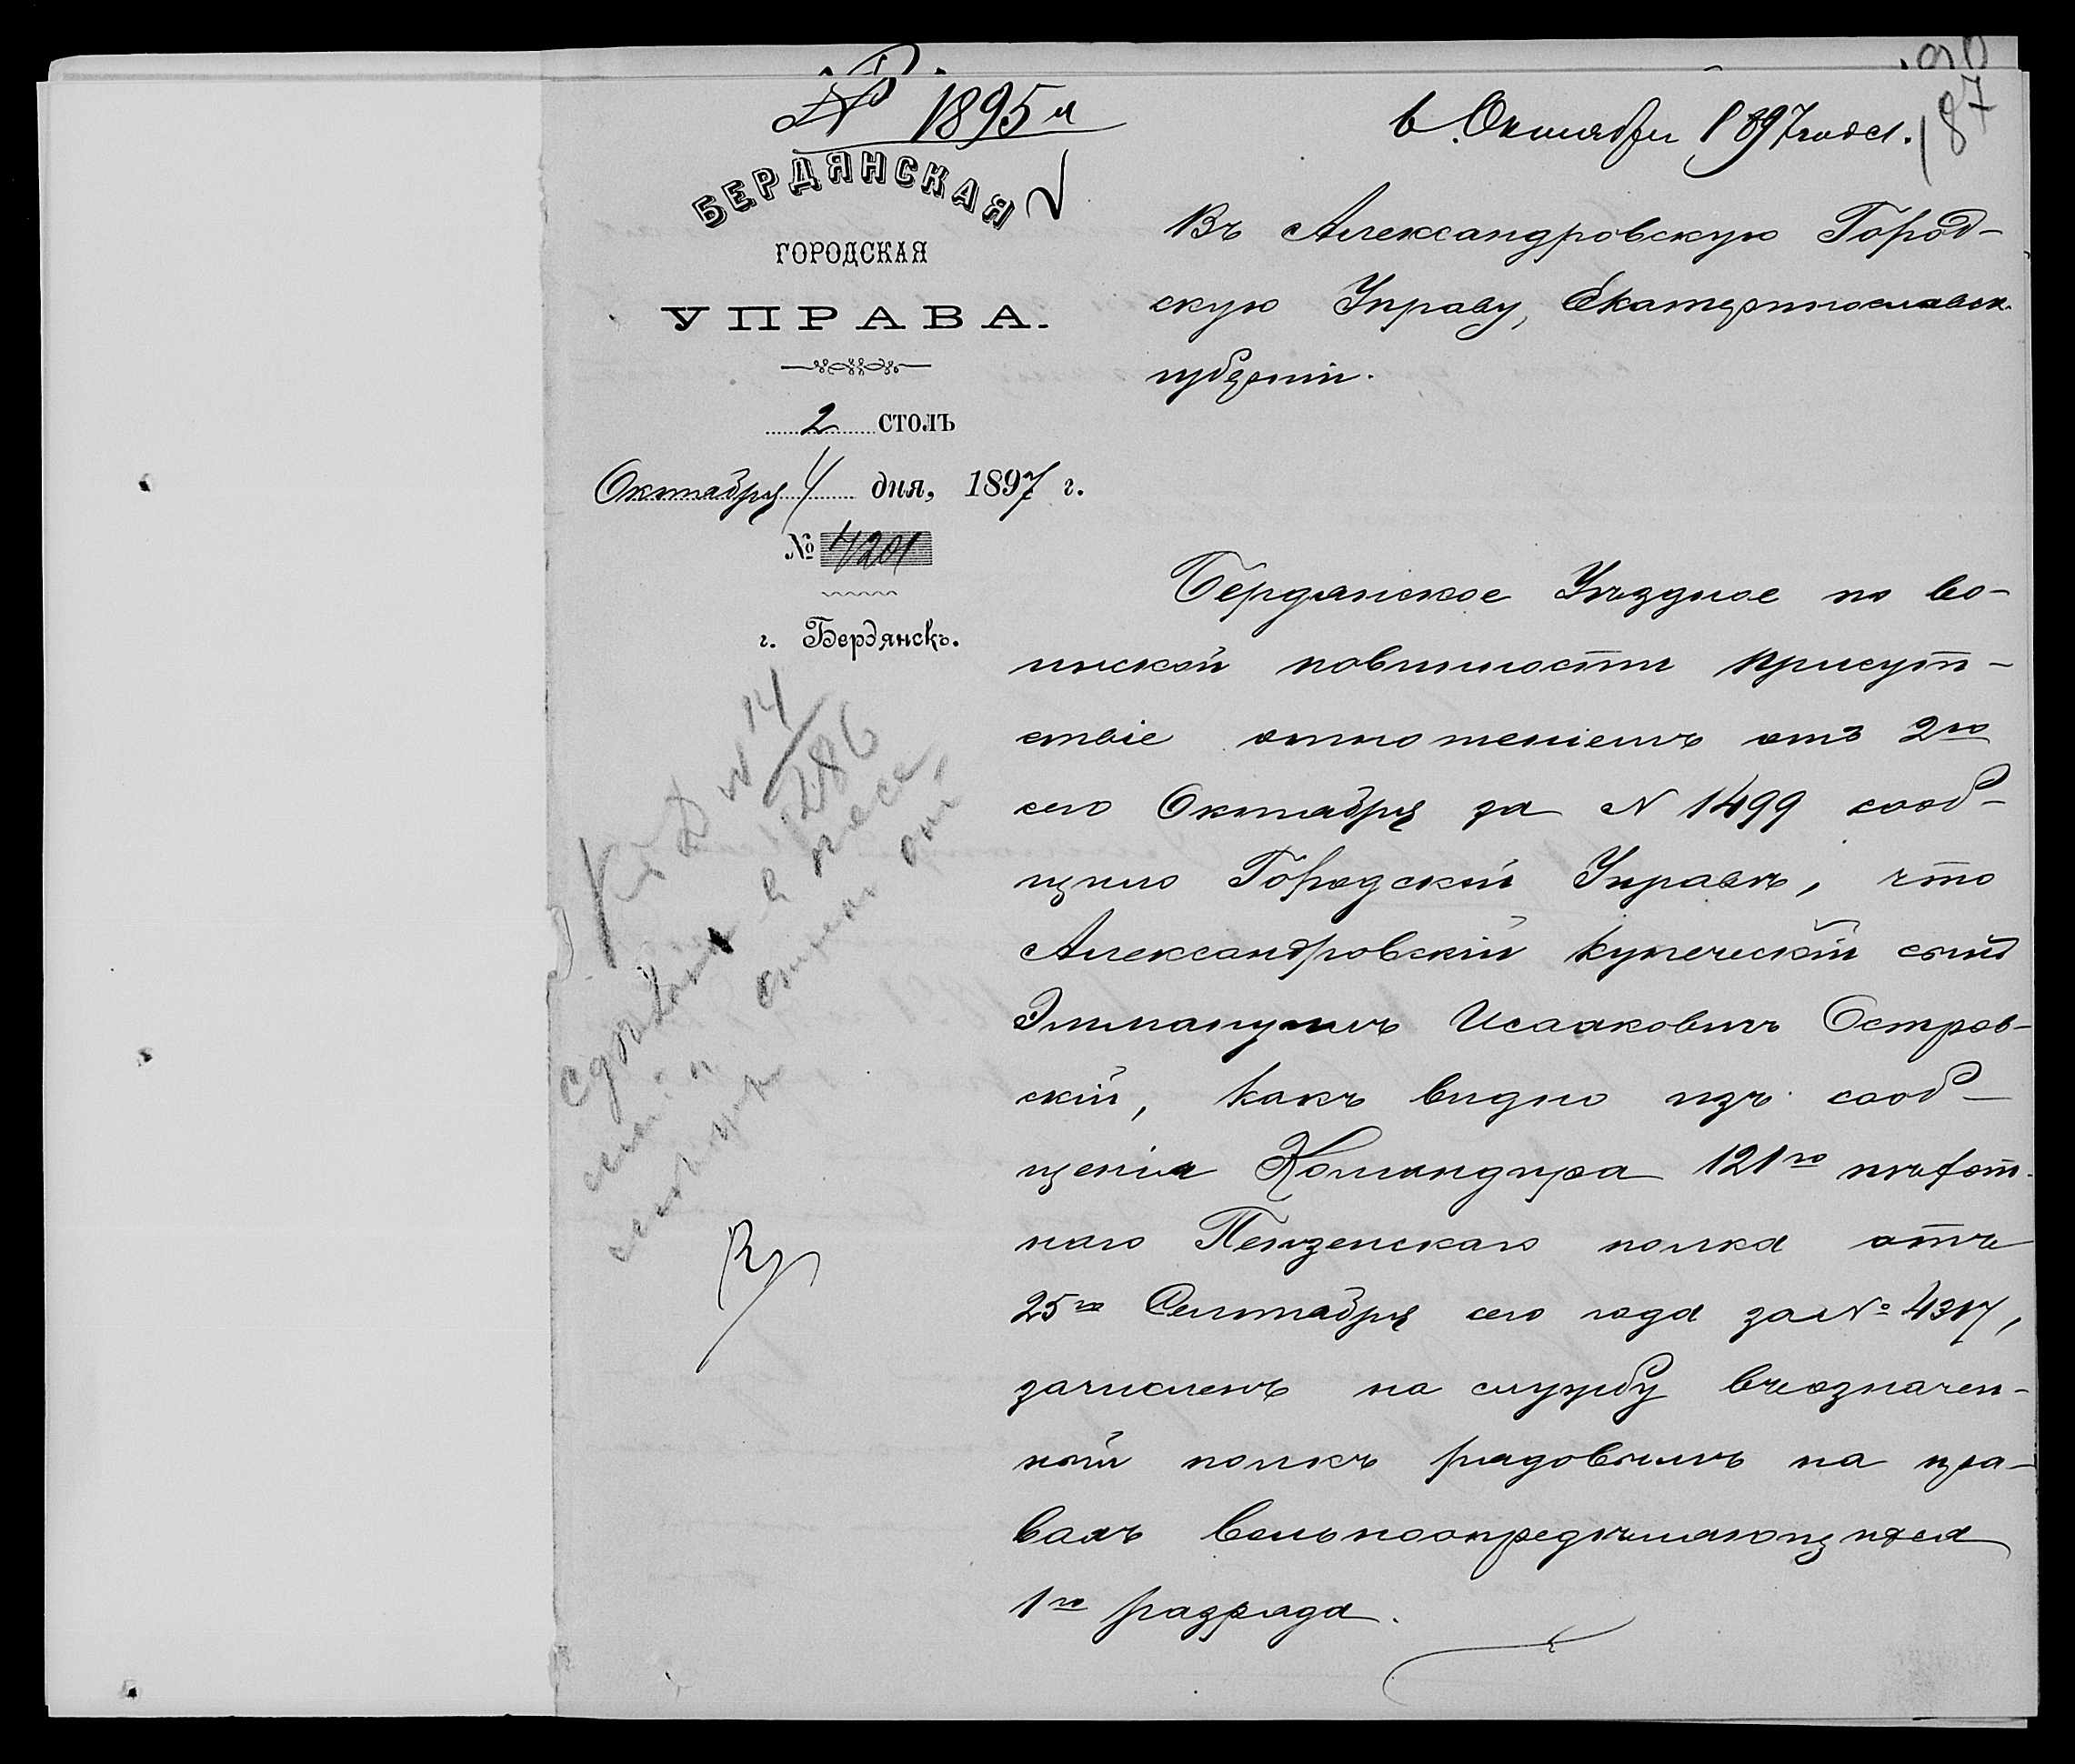 № 1895
6 Октября 1897 года.
187
БЕРДЯНСКАЯ
ГОРОДСКАЯ
УПРАВА.
2 СТОЛЪ
Октября 4 дня, 1897 г.
№ 4201
г. Бердянскъ.
Въ Александровскую Город-
скую Управу, Екатеринославск.
губерніи.
Бердянское Уѣздное по во-
инской повинности присут-
ствіе отношеніемъ отъ 2го
сего Октября за N 1499 сооб-
щило Городской Управѣ, что
Александровскій купеческій сынъ
Эммануилъ Исааковичъ Остров-
скій, какъ видно изъ сооб-
щенія Командира 121го пѣхот-
наго Пензенскаго полка отъ
25го Сентября сего года за № 4317,
зачисленъ на службу въ означен-
ный полкъ рядовымъ на пра-
вахъ вольноопредѣляющагося
1го разряда.
Къ Д N 14
286